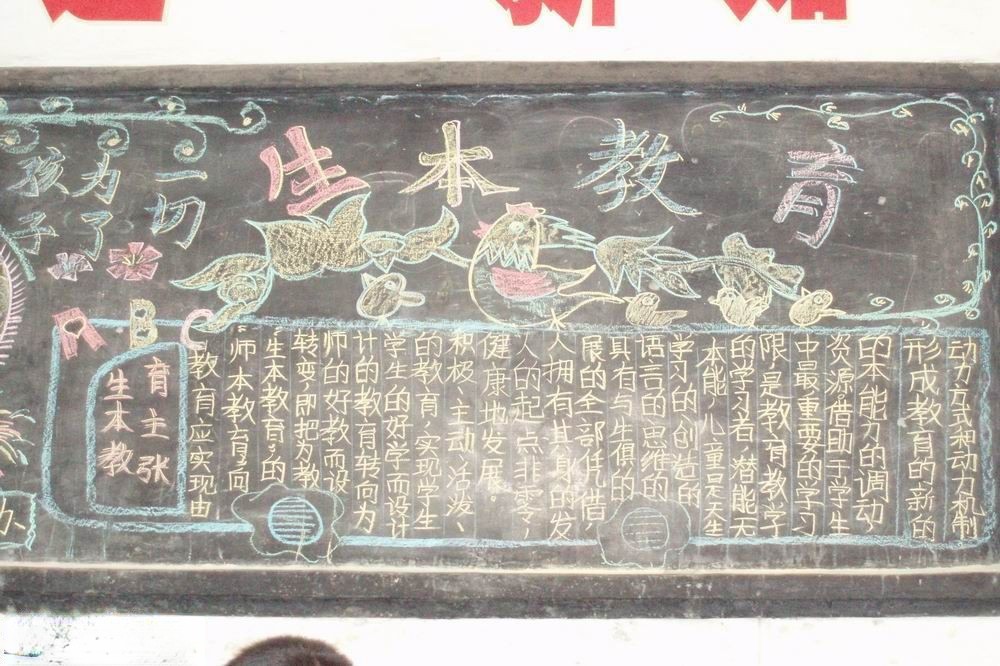 生本教育
一切
为了
孩子
A B C
生本教
育主张
教育应实现由
“师本教育”向
“生本教育”的
转变,即把为教
师的好教而设
计的教育转向为
学生的好学而设计
的教育,实现学生
积极、主动、活泼、
健康地发展。
人的起点非零,
人拥有其自身的发
展的全部凭借,
具有与生俱的
语言的思维的
学习的创造的
本能,儿童是天生
的学习者,潜能无
限,是教育教学
中最重要的学习
资源。借助于学生
的本能力的调动
形成教育的新的
动力方式和动力机制